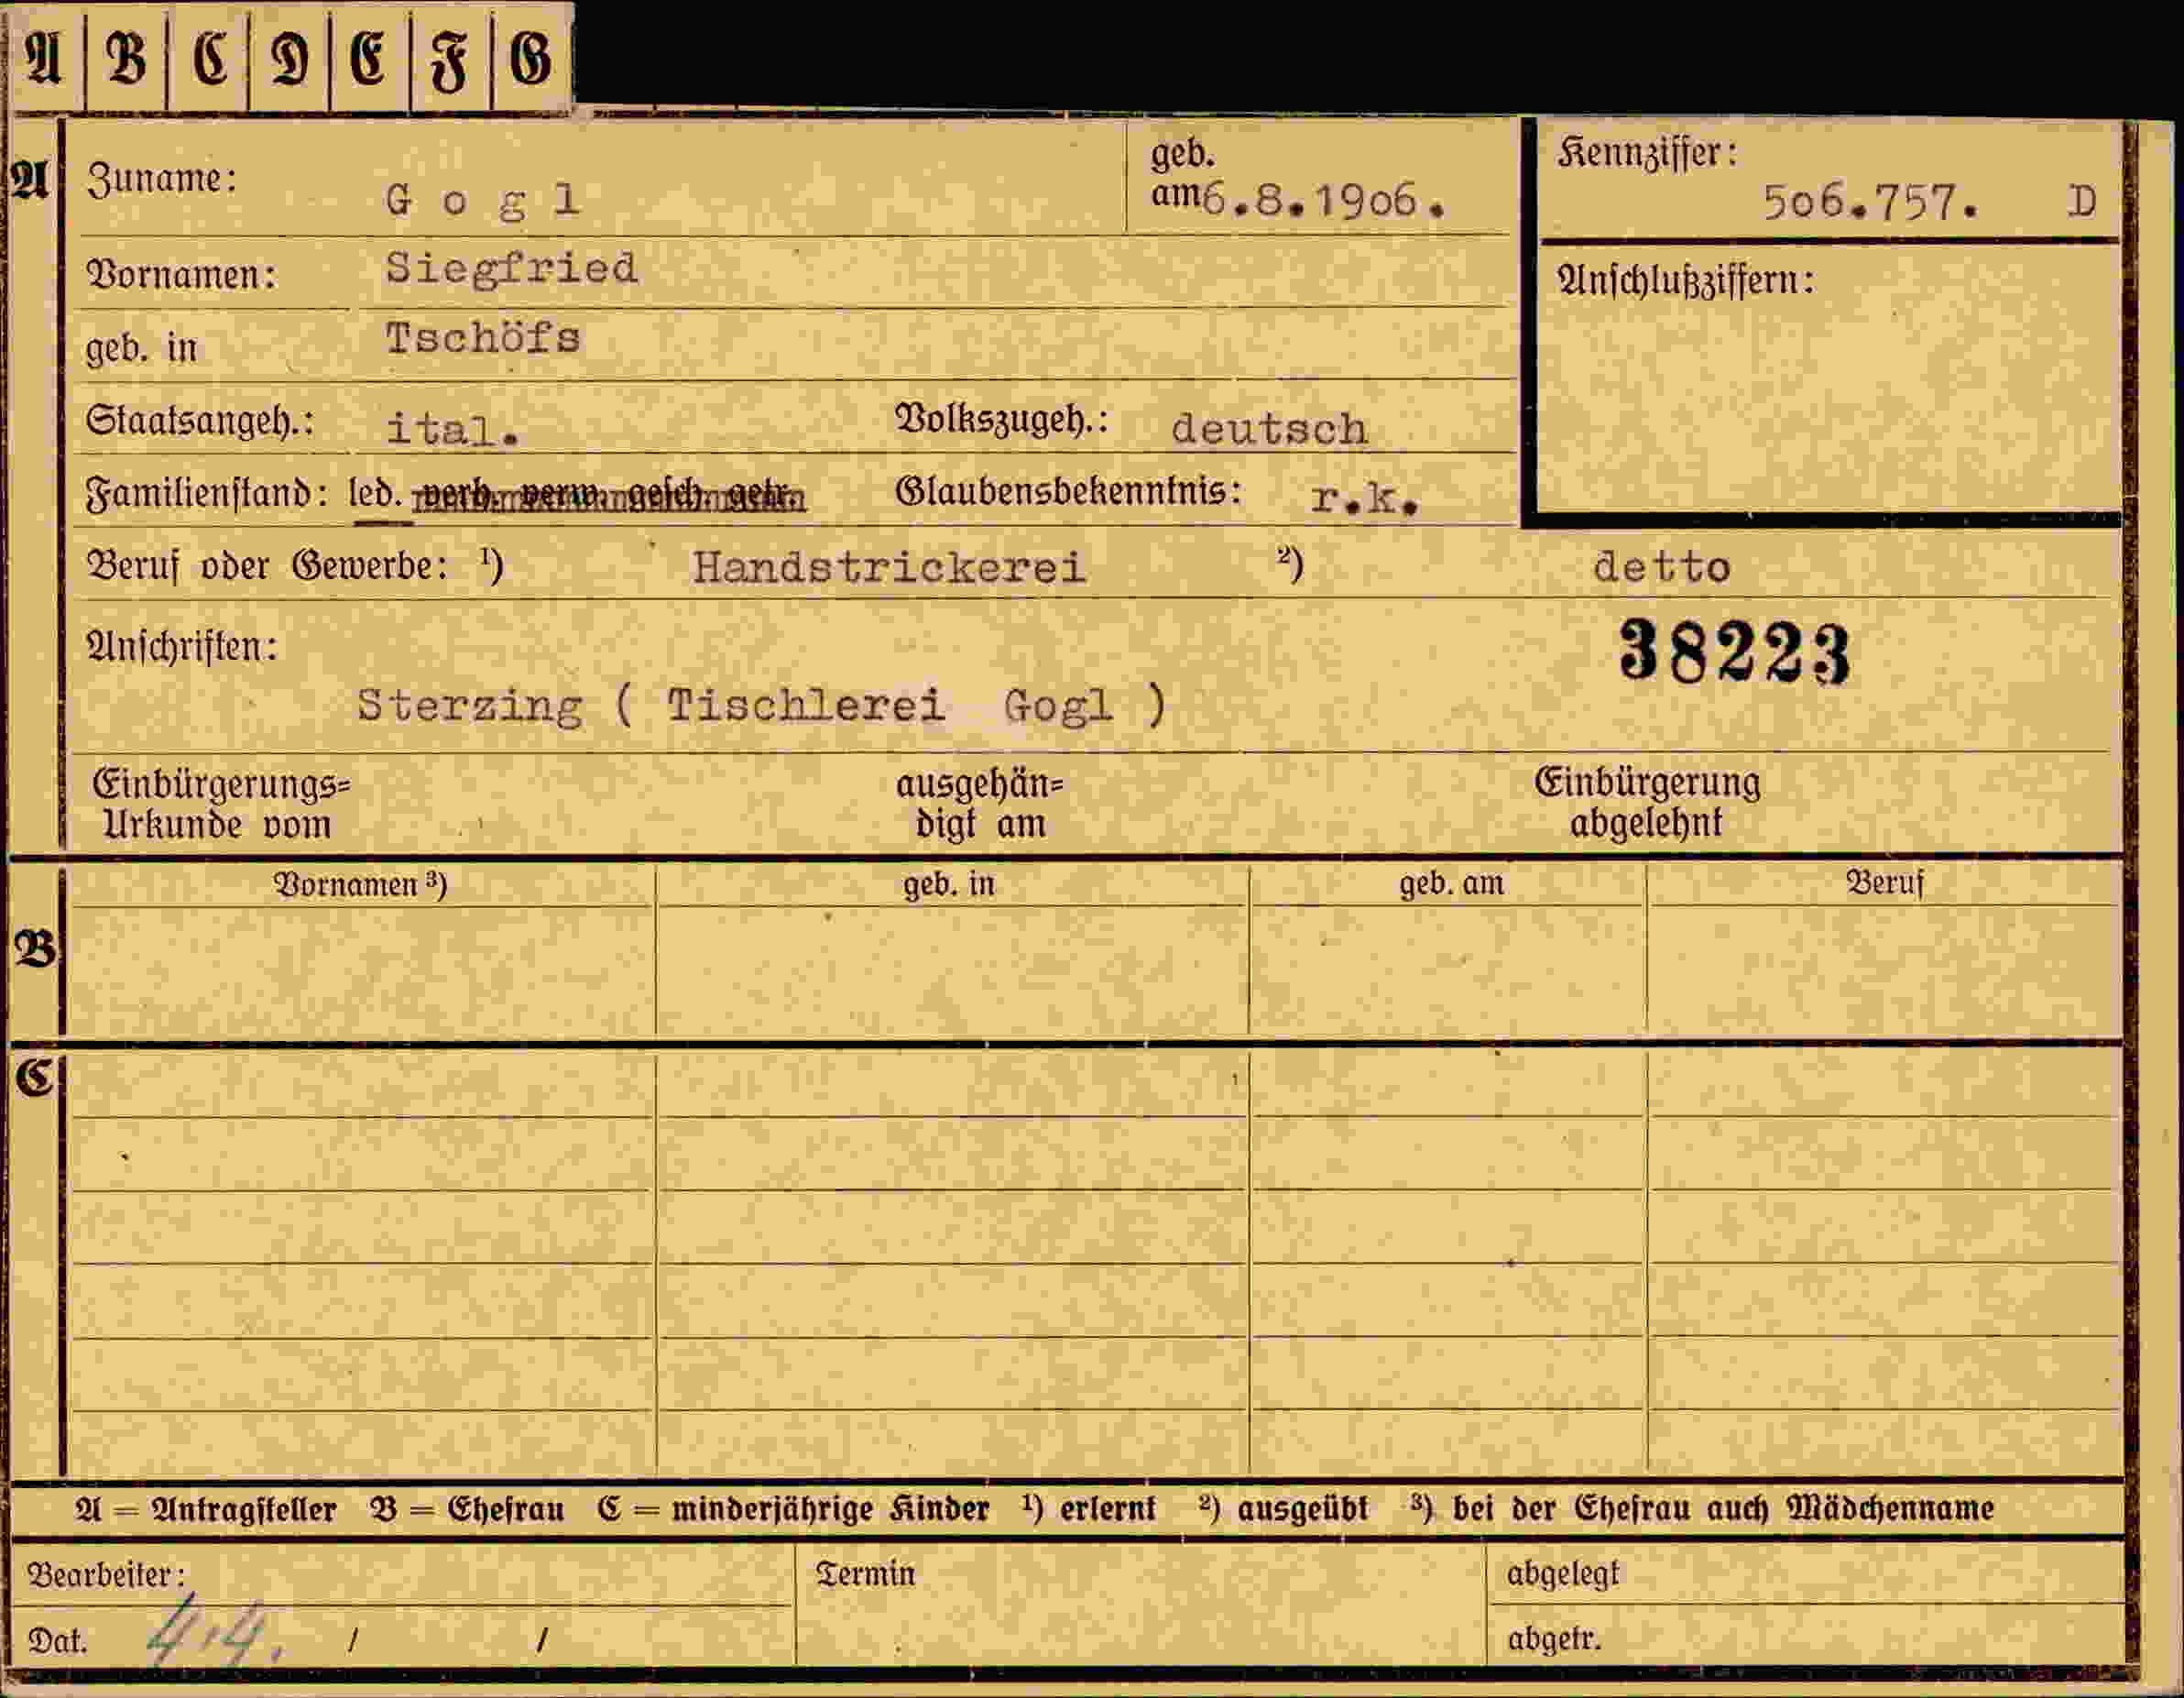 A B C D E F G
A Zuname: Gogl geb. am 6.8.1906. Kennziffer: 506.757. D
Vornamen: Siegfried Anschlußziffern:
geb. in Tschöfs
Staatsangeh.: ital. Volkszugeh.: deutsch
Familienstand: led. verh. verw. gesch. getr. Glaubensbekenntnis: r.k.
Beruf oder Gewerbe: ¹) Handstrickerei ²) detto
Anschriften: 38223
Sterzing ( Tischlerei Gogl )
Einbürgerungs= ausgehän= Einbürgerung
Urkunde vom digt am abgelehnt
B Vornamen ³) geb. in geb. am Beruf
C
A = Antragsteller B = Ehefrau C = minderjährige Kinder ¹) erlernt ²) ausgeübt ³) bei der Ehefrau auch Mädchenname
Bearbeiter: Termin abgelegt
Dat. 4.4. / / abgetr.